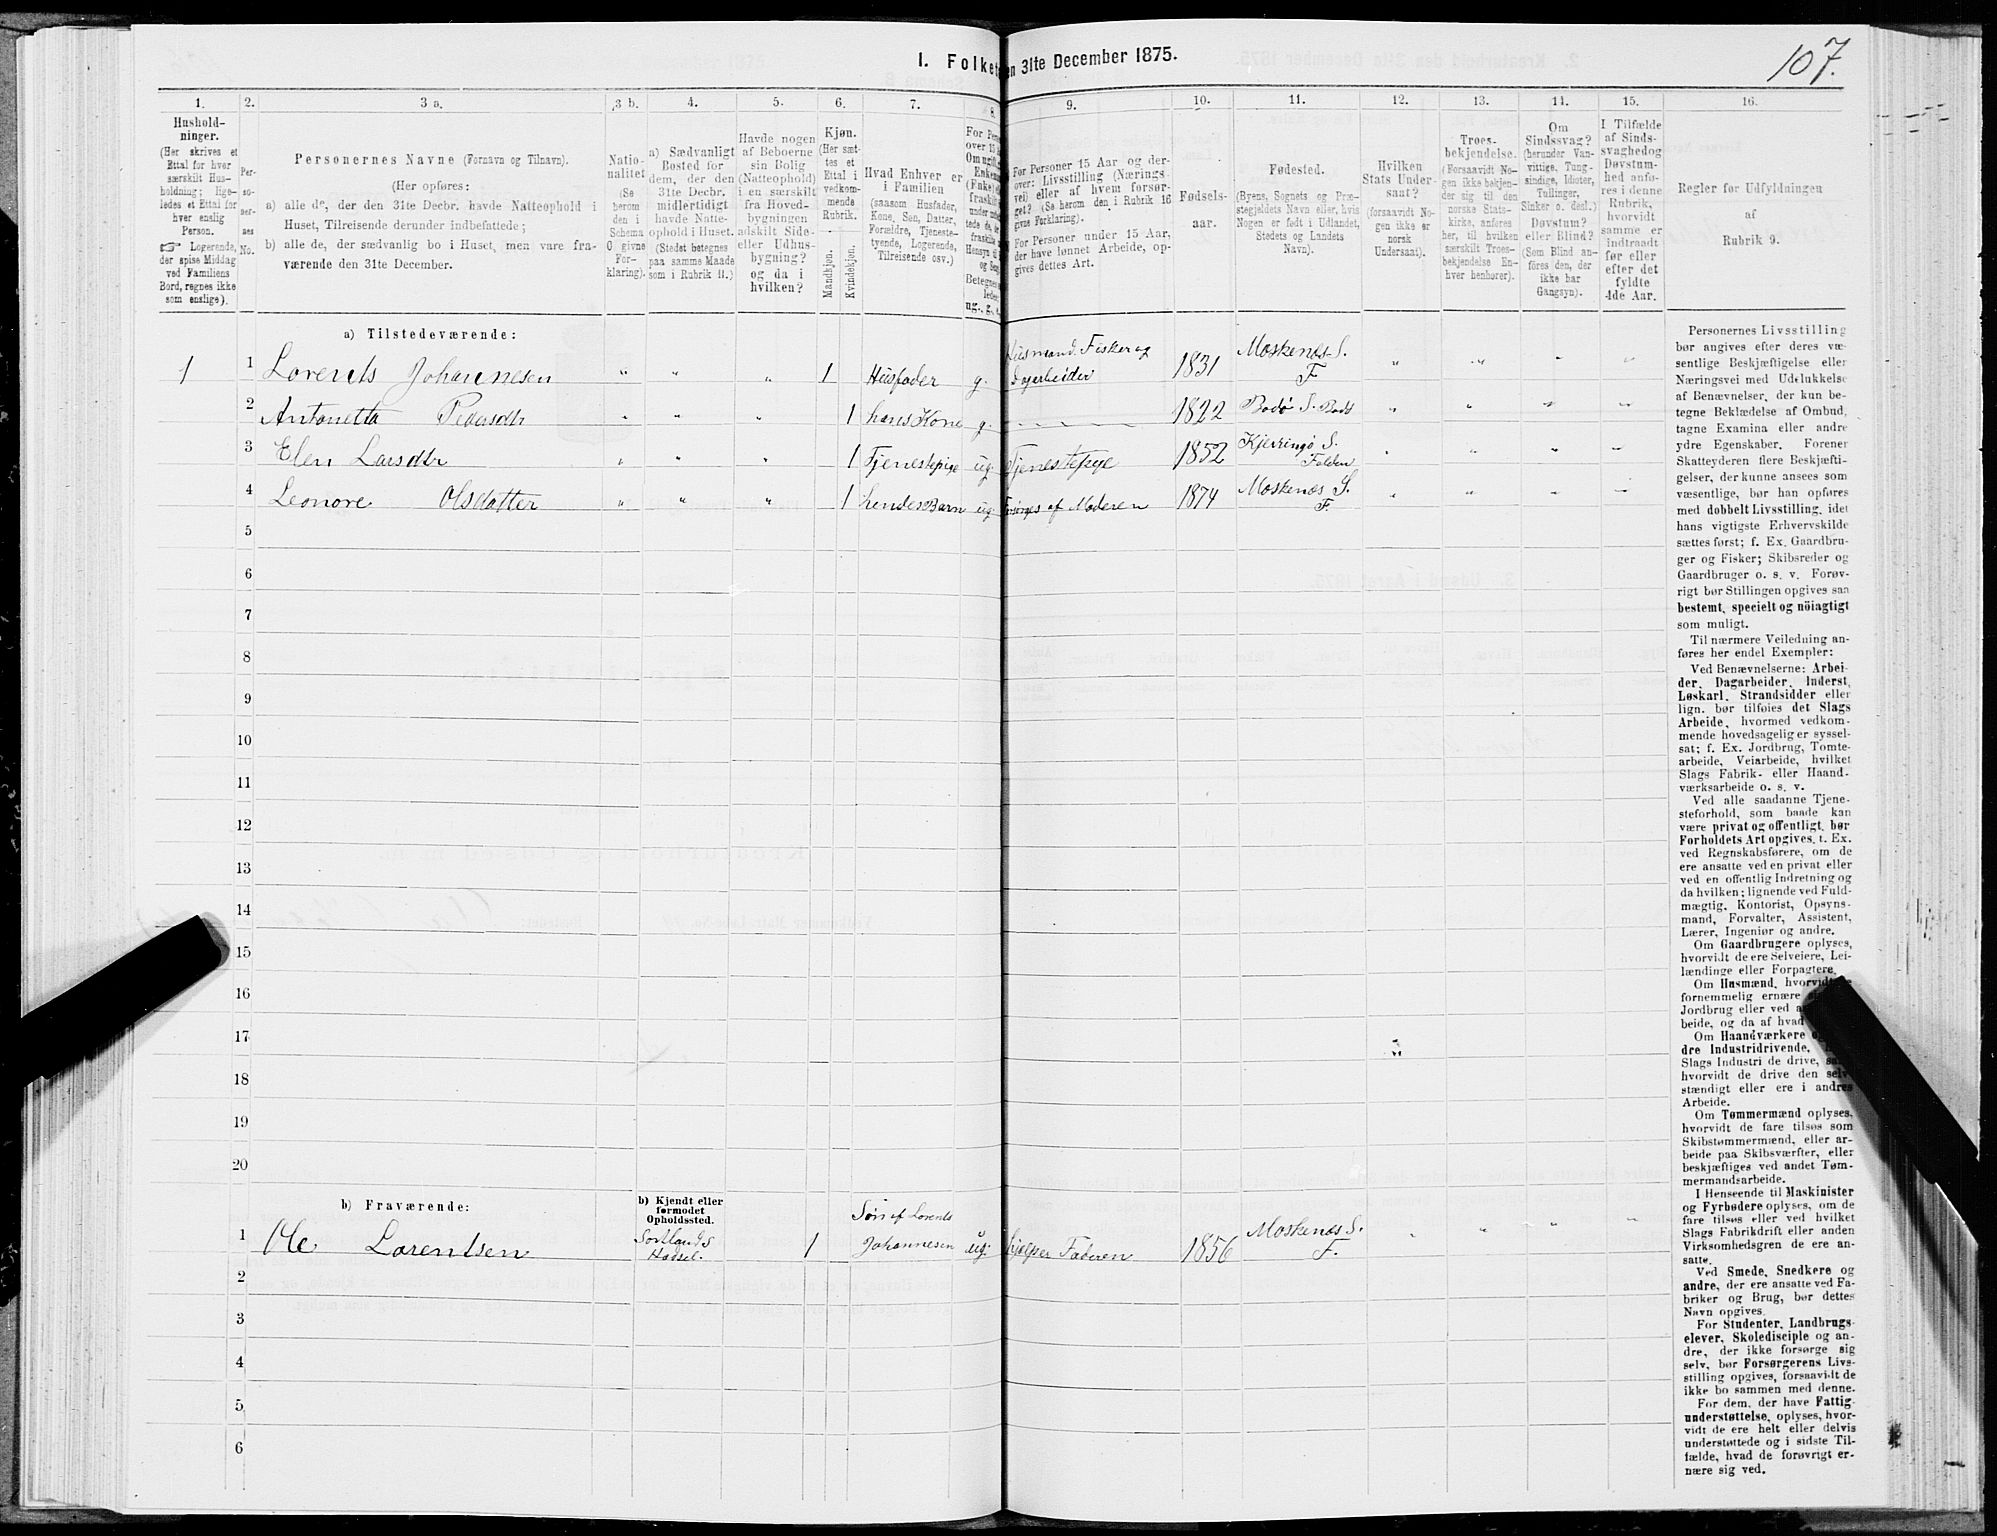 I. Folket en 31te December 1875.
107.
1.
2.
3 a.
3 b.
4.
5.
6.
7.
8.
9.
10.
11.
12.
13.
14.
15.
16.
Hushold-
ninger.
(Her skrives et
Ettal for hver
særskilt Hus-
holdning; lige-
ledes et Ettal for
hver enslig
Person.
☞ Logerende,
der spise Middag
ved Familiens
Bord, regnes ikke
som enslige).
Per-
so-
ner-
nes
No.
Personernes Navne (Fornavn og Tilnavn).
(Her opføres:
a) alle de, der den 31te Decbr. havde Natteophold i
Huset, Tilreisende derunder indbefattede;
b) alle de, der sædvanlig bo i Huset, men vare fra-
værende den 31te December.
Natio-
nalitet
(Se
herom
den i
Schema
O givne
For-
klaring).
a) Sædvanligt
Bosted for
dem, der den
31te Decbr.
midlertidigt
havde Natte-
ophold i Huset.
(Stedet betegnes
paa samme Maade
som i Rubrik 11.)
Havde nogen
af Beboerne
sin Bolig
(Natteophold)
i en særskilt
fra Hoved-
bygningen
adskilt Side-
eller Udhus-
bygning?
og da i
hvilken?
Kjøn.
(Her sæt-
tes et
Ettal i
vedkom-
mende
Rubrik.
Mandkjøn.
Kvindekjøn.
Hvad Enhver er
i Familien
(saasom Husfader,
Kone, Søn, Datter,
Forældre, Tjeneste-
tyende, Logerende,
Tilreisende osv.)
For Pers
over 15
Om ugift,
Enkem
(Fraskil
Hensyn
og Seng
Betegnes
ledes
ug., g.,
For Personer 15 Aar og der-
over: Livsstilling (Nærings-
vei) eller af hvem forsør-
get? (Se herom den i Rubrik 16
givne Forklaring).
For Personer under 15 Aar,
der have lønnet Arbeide, op-
gives dettes Art.
Fødsels-
aar.
Fødested.
(Byens, Sognets og Præ-
stegjeldets Navn eller, hvis
Nogen er født i Udlandet,
Stedets og Landets
Navn).
Hvilken
Stats Under-
saat?
(forsaavidt No-
gen ikke er
norsk
Undersaat).
Troes-
bekjendelse.
(Forsaavidt No-
gen ikke bekjen-
der sig til den
norske Stats-
kirke, anføres
her, til hvilken
særskilt Troes-
bekjendelse En-
hver henhører).
Om
Sindssvag?
(herunder Van-
vittige, Tung-
sindige, Idioter,
Tullinger,
Sinker o. desl.)
Døvstum?
eller Blind?
(Som Blind an-
føres den, der
ikke har
Gangsyn).
I Tilfælde
af Sinds-
svaghed og
Døvstum-
hed anfø-
res i denne
Rubrik,
hvorvidt
samme er
indtraadt
før eller
efter det
fyldte
4de Aar.
Regler for Udfyldningen
af
Rubrik 9.
a) Tilstedeværende:
1 1 Lorents Johannesen " " " 1 Husfader g. Husmand. Fisker og Dagarbeider 1831 Moskenæs S. F " " " "
2 Antonetta Pedersdtr " " " 1 hans Kone g. 1822 Bodø S. Bodø " " " "
3 Elen Larsdtr " " " 1 Tjenestepige ug. Tjenestepige 1852 Kjerringø S. Folden " " " "
4 Leonore Olsdatter " " " 1 hendes Barn ug. Forsørges af Moderen 1874 Moskenæs S. F. " " " "
5
6
7
8
9
10
11
12
13
14
15
16
17
18
19
20
b) Fraværende:
b) Kjendt eller
formodet
Opholdssted.
1 Ole Lorentsen Sortlands Hadsel. 1 Søn af Lorents Johannesen ug. hjelper Faderen 1856 Moskenæs S. F. " " " "
2
3
4
5
6
Personernes Livsstilling
bør angives efter deres væ-
sentlige Beskjæftigelse eller
Næringsvei med Udelukkelse
af Benævnelser, der kun be-
tegne Beklædelse af Ombud,
tagne Examina eller andre
ydre Egenskaber. Forener
Skatteyderen flere Beskjæfti-
gelser, der kunne ansees som
væsentlige, bør han opføres
med dobbelt Livsstilling, idet
hans vigtigste Erhvervskilde
sættes først; f. Ex. Gaardbru-
ger og Fisker; Skibsreder og
Gaardbruger o. s. v. Forøv-
rigt bør Stillingen opgives saa
bestemt, specielt og nöiagtigt
som muligt.
Til nærmere Veiledning an-
føres her endel Exempler:
Ved Benævnelserne: Arbei-
der, Dagarbeider, Inderst,
Løskarl, Strandsidder eller
lign. bør tilføies det Slags
Arbeide, hvormed vedkom-
mende hovedsagelig er syssel-
sat; f. Ex. Jordbrug, Tomte-
arbeide, Veiarbeide, hvilket
Slags Fabrik- eller Haand-
værksarbeide o. s. v.
Ved alle saadanne Tjene-
steforhold, som baade kan
være privat og offentligt, bør
Forholdets Art opgives, t. Ex.
ved Regnskabsførere, om de
ere ansatte ved en privat eller
ved en offentlig Indretning og
da hvilken; lignende ved Fuld-
mægtig, Kontorist, Opsyns-
mand, Forvalter, Assistent,
Lærer, Ingeniør og andre.
Om Gaardbrugere oplyses,
hvorvidt de ere Selveiere, Lei-
lændinge eller Forpagtere.
Om Husmænd, hvorvidt
fornemmelig ernære
Jordbrug eller ved
beide, og da af hvad
Om Haandværkere
dre Industridrivende,
Slags Industri de drive,
hvorvidt de drive den selv-
stændigt eller ere i andres
Arbeide.
Om Tømmermænd oplyses,
hvorvidt de fare tilsøs som
Skibstømmermænd, eller ar-
beide paa Skibsværfter, eller
beskjæftiges ved andet Tøm-
mermandsarbeide.
I Henseende til Maskinister
og Fyrbødere oplyses, om de
fare tilsøs eller ved hvilket
Slags Fabrikdrift eller anden
Virksomhedsgren de ere an-
satte.
Ved Smede, Snedkere og
andre, der ere ansatte ved Fa-
briker og Brug, bør dettes
Navn opgives.
For Studenter, Landbrugs-
elever, Skoledisciple og an-
dre, der ikke forsørge sig
selv, bør Forsørgerens Livs-
stilling opgives, forsaavidt de
ikke bo sammen med denne.
For dem, der have Fattig-
understøttelse, oplyses, hvor-
vidt de ere helt eller delvis
understøttede og i sidste Til-
fælde, hvad de forøvrigt er-
nære sig ved.